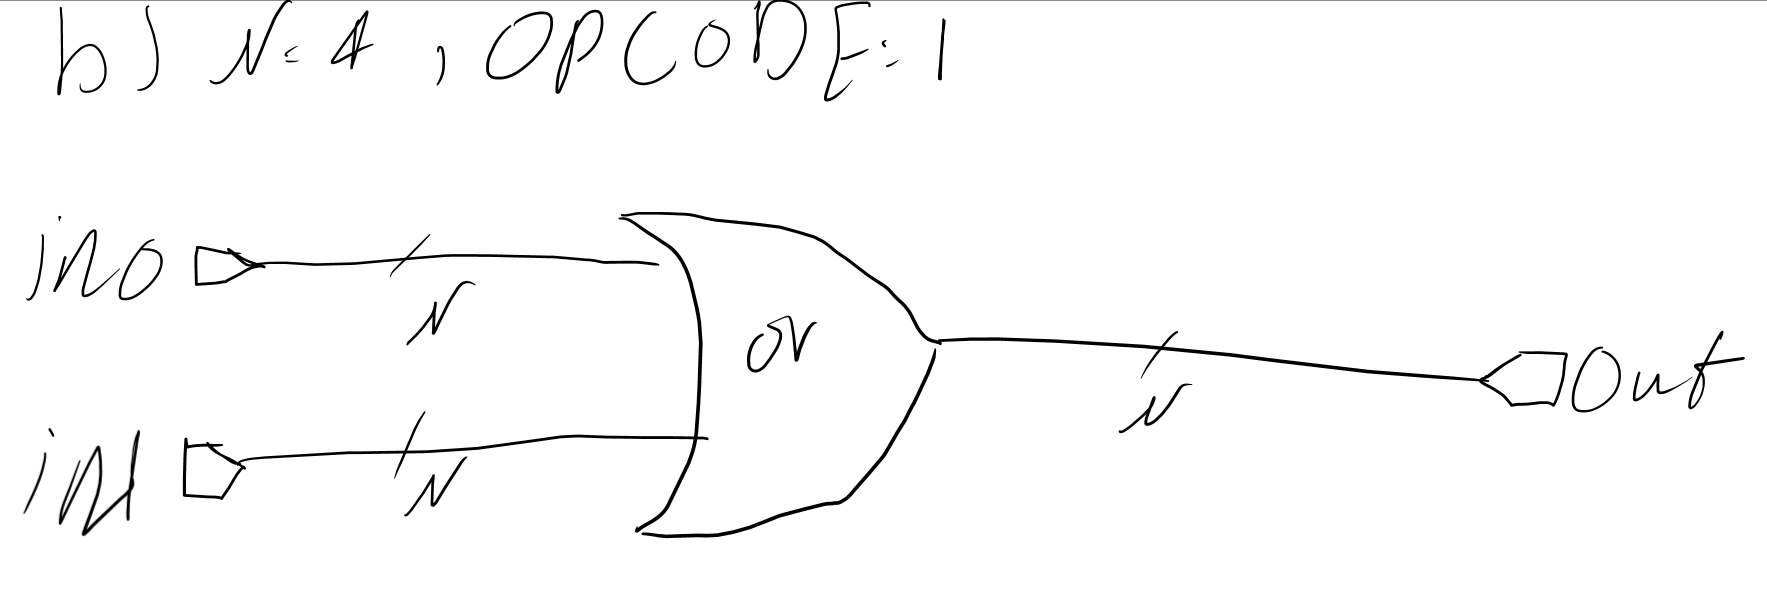 b) N=4, OPCODE=1
in0
N
or
N
Out
in1
N